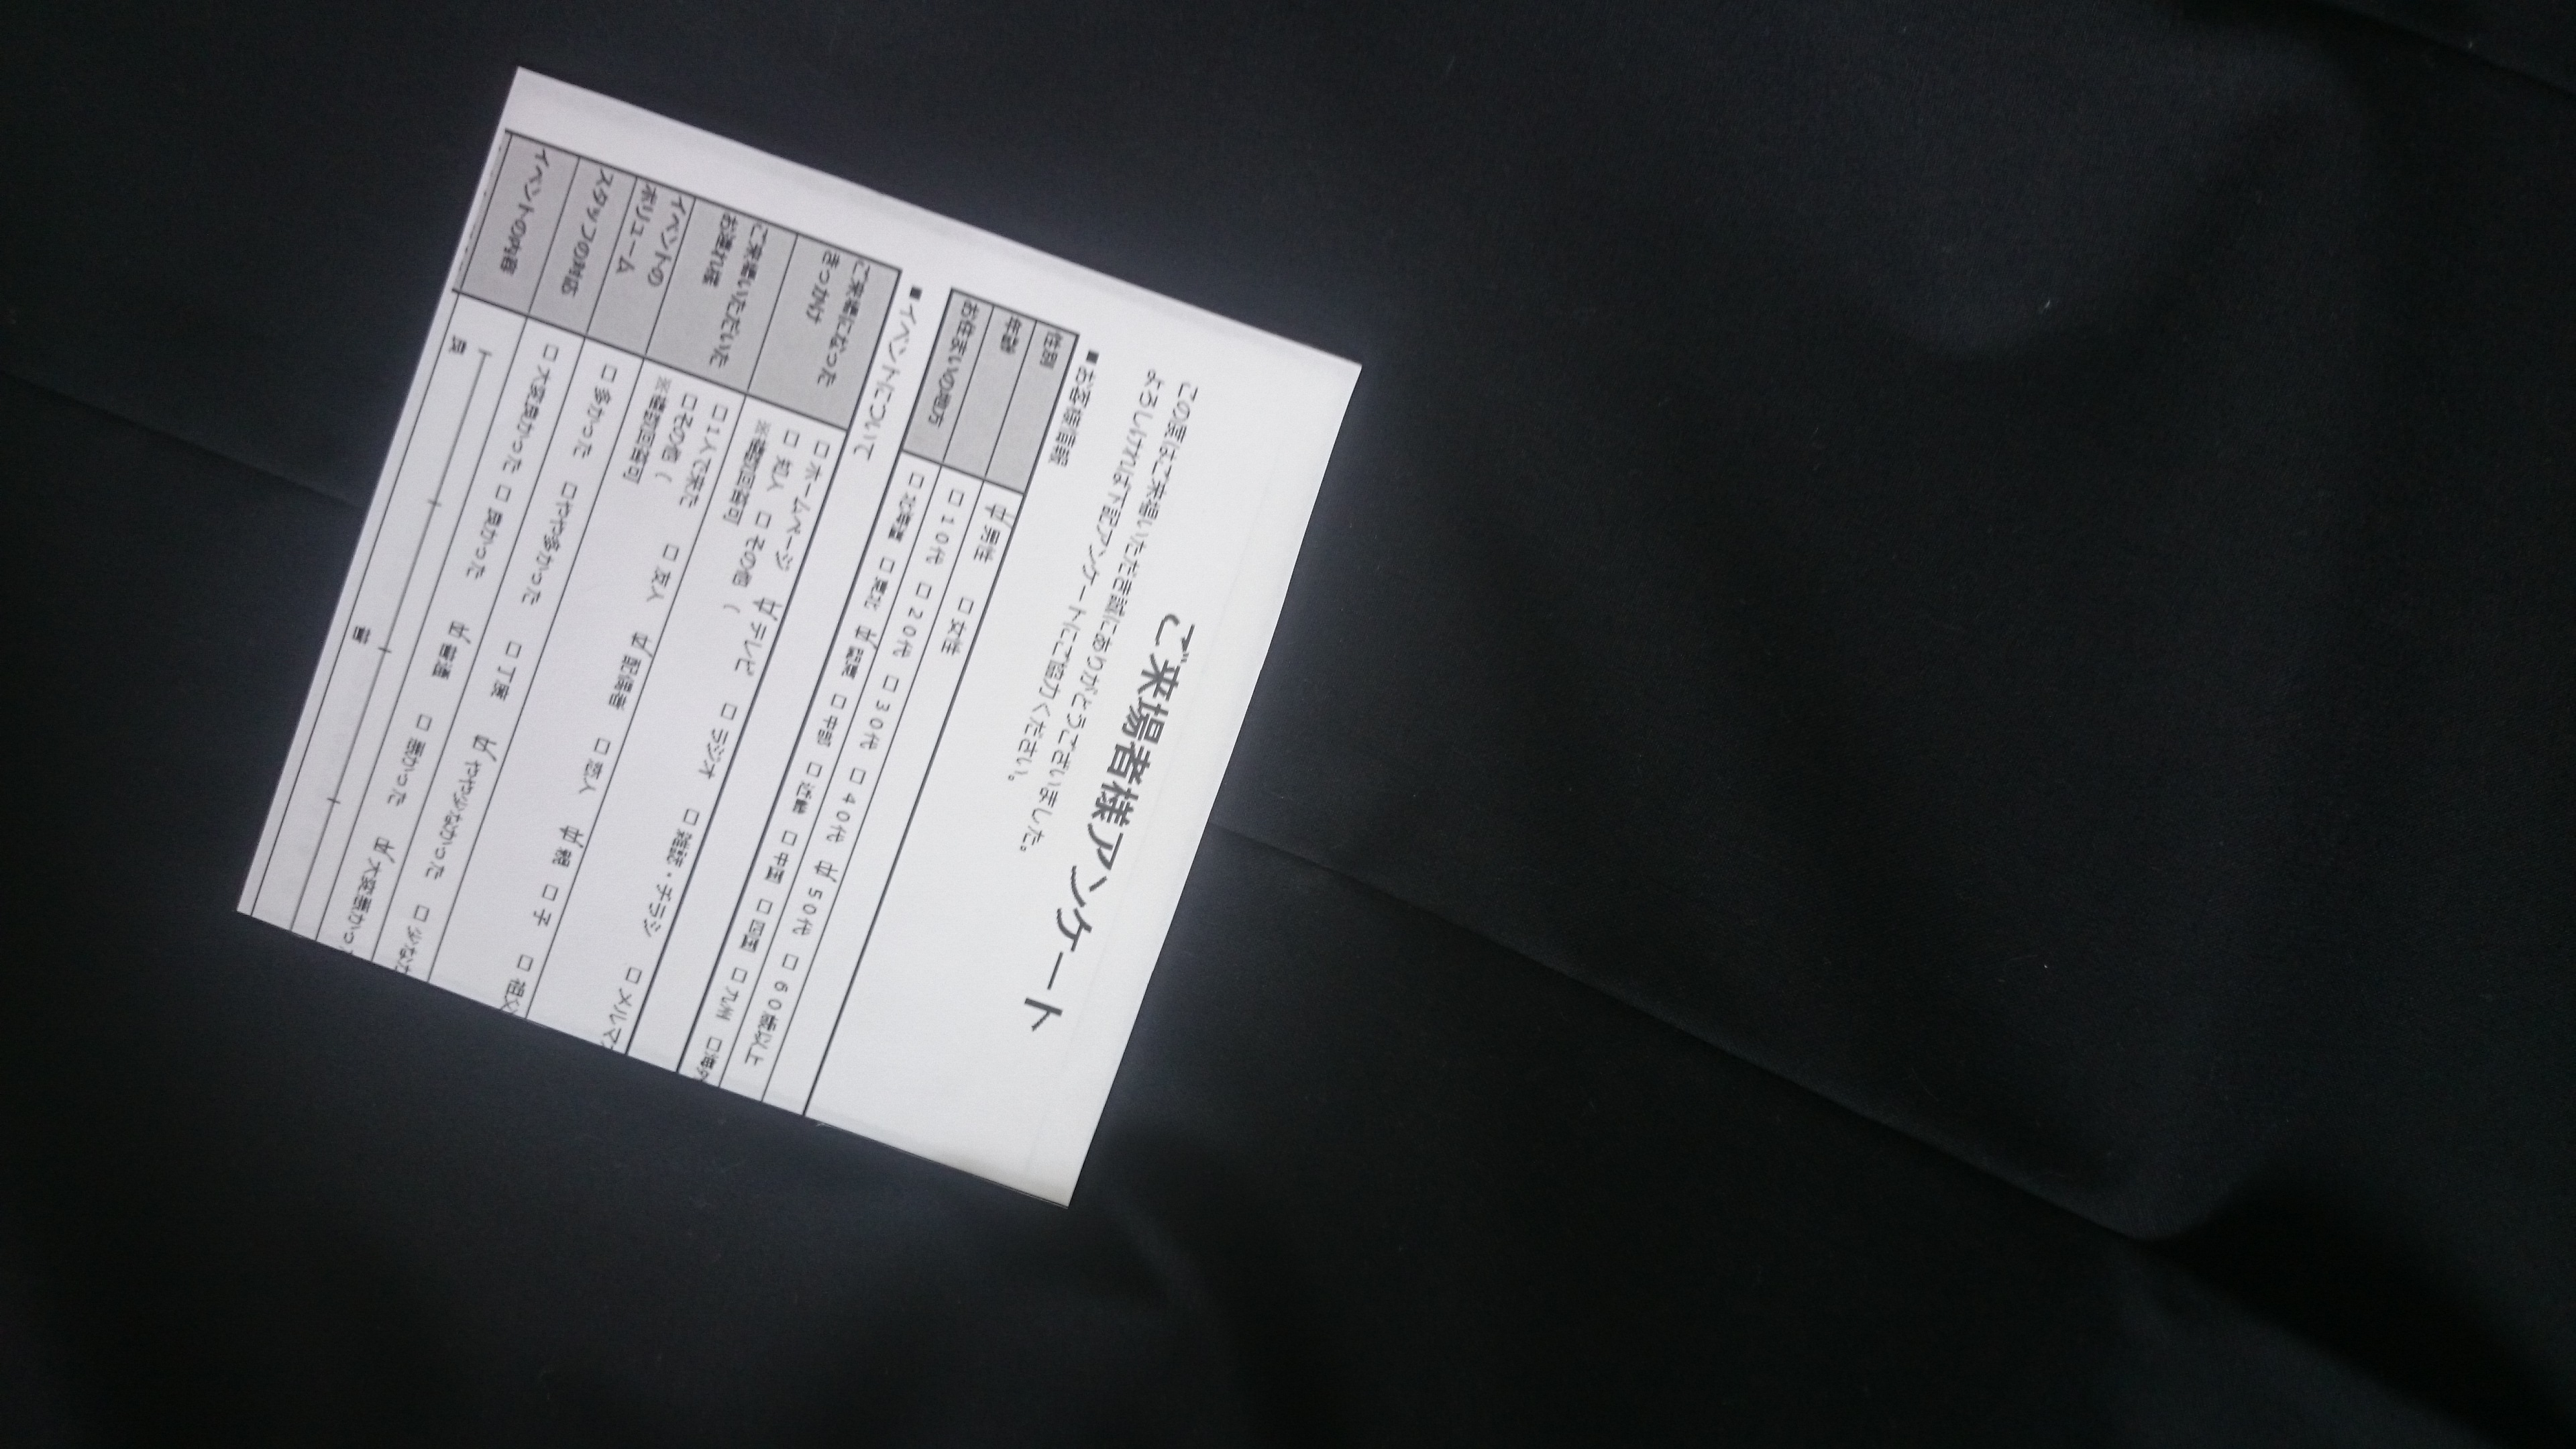 ご来場者様アンケート
この度はご来場いただき誠にありがとうございました。
よろしければ下記アンケートにご協力ください。
■お客様情報
性別 ☑男性 □女性
年齢 □10代 □20代 □30代 □40代 ☑50代 □60歳以上
お住まいの地方 □北海道 □東北 ☑関東 □中部 □近畿 □中国 □四国 □九州 □海外
■イベントについて
ご来場になった
きっかけ
□ホームページ ☑テレビ □ラジオ □雑誌・チラシ □メルマガ
□知人 □その他 (
※複数回答可
ご来場いただいた
お連れ様
□1人で来た □友人 ☑配偶者 □恋人 ☑親 □子 □祖父
□その他 (
※複数回答可
イベントの
ボリューム
□多かった □やや多かった □丁度 ☑やや少なかった □少なか
スタッフの対応 □大変良かった □良かった ☑普通 □悪かった ☑大変悪かっ
イベントの内容 良 普